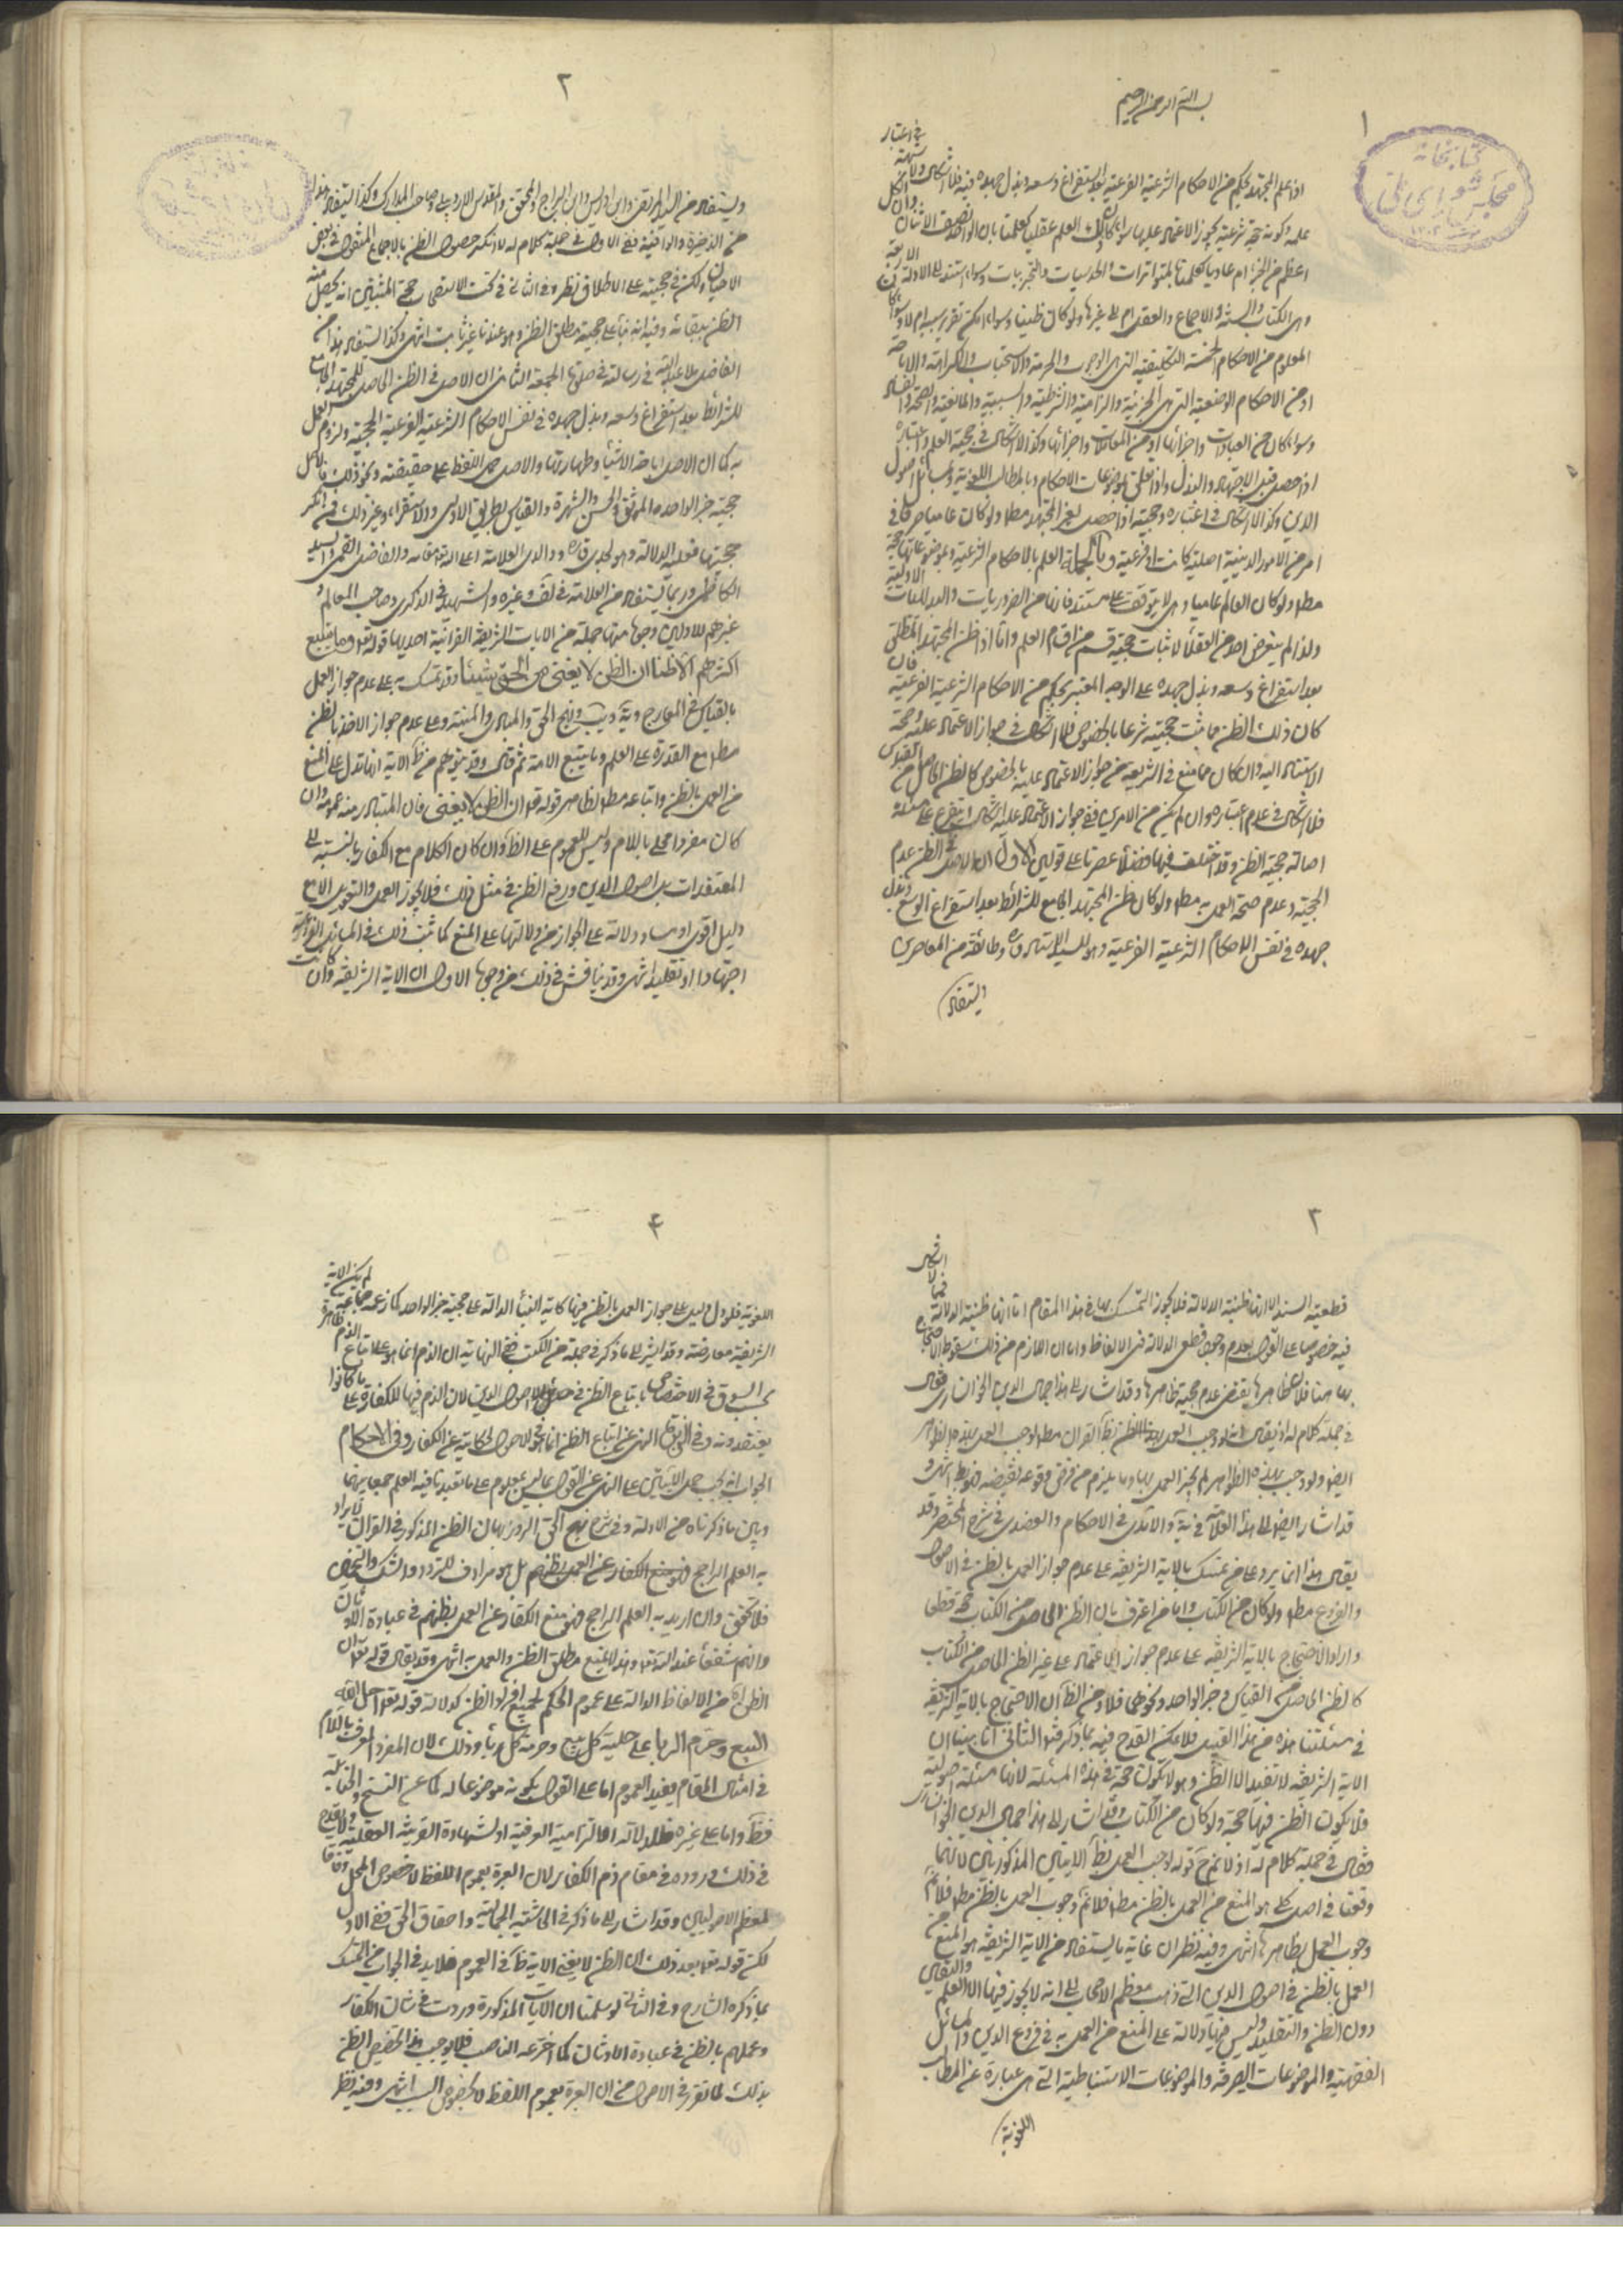 ١
بسم الله الرحمن الرحيم
اذا علم المجتهد بحكم من الاحكام الشرعية الفرعية بعد استفراغ وسعه وبذل جهده فيه فلا اشكال ولا شبهة في اعتبار
علمه وكونه حجة شرعية يجوز الاعتماد عليها سواء كان ذلك العلم عقليا كعلمنا بان الواحد نصف الاثنان وان الكل
اعظم من الجزء ام عاديا كعلمنا بالمتواترات والحدسيات والتجربيات وسواء استند الى الادلة الاربعة
وهي الكتاب والسنة والاجماع والعقل ام الى غيرها ولو كان ظنيا وسواء امكن تقريره ام لا وسواء كان
المعلوم من الاحكام الخمسة التكليفية التي هي الوجوب والحرمة والاستحباب والكراهة والاباحة
او من الاحكام الوضعية التي هي الجزئية والشرطية والسببية والمانعية والصحة والفساد
وسواء كان من العبادات واجزائها او من المعاملات واجزائها وكذا لا اشكال في حجية العلم واعتباره
اذا حصل قبل الاجتهاد والبذل واذا تعلق بموضوعات الاحكام وبالمطالب اللغوية ومسائل اصول
الدين وكذا لا اشكال في اعتباره وحجيته اذا حصل لغير المجتهد مطلقا ولو كان عاميا صرفا في
امر من الامور الدينية اصلية كانت او فرعية وبالجملة العلم بالاحكام الشرعية وبموضوعاتها حجة
مطلقا ولو كان العالم عاميا ولا يتوقف على مستند فانها من الضروريات والبديهيات الاولية
ولذا لم يتعرض احد من العقلاء لاثبات حجية قسم من اقسام العلم واما اذا ظن المجتهد المطلق
بعد استفراغ وسعه وبذل جهده على الوجه المعتبر بحكم من الاحكام الشرعية الفرعية فان
كان ذلك الظن مما ثبت حجيته شرعا بالخصوص فلا اشكال في جواز الاعتماد عليه وصحة
الاستناد اليه وان كان مما منع في الشريعة من جواز الاعتماد عليه بالخصوص كالظن الحاصل من القياس
فلا اشكال في عدم اعتباره وان لم يكن من الامرين ففي جواز الاعتماد عليه اشكال يتفرع على مسئلة
اصالة حجية الظن وقد اختلف فيها فضلاء عصرنا على قولين الاول ان الاصل في الظن عدم
الحجية وعدم صحة العمل به مطلقا ولو كان ظن المجتهد الجامع للشرائط بعد استفراغ الوسع وبذل
جهده في نفس الاحكام الشرعية الفرعية وهو للسيد الاستاد وطائفة من المعاصرين
ويستفاد
٢
ويستفاد من السيد المرتضى وابن ادريس وابن البراج والمحقق والمقدس الاردبيلي وصاحب المدارك وكذا يستفاد هذا
من الذخيرة والوافية ففي الاول في جملة كلام له لا انكر حصول الظن بالاجماع المنقول في بعض
الاحيان ولكن في حجيته على الاطلاق نظر وفي الثاني في بحث الاستصحاب حجة المثبتين انه يحصل منه
الظن ببقائه وفيه انه بناء على حجية مطلق الظن وهو عندنا غير ثابت انتهى وكذا يستفاد هذا من
الفاضل ملا عبد الله في رسالته في صلوة الجمعة الثاني ان الاصل في الظن الحاصل للمجتهد الجامع
للشرائط بعد استفراغ وسعه وبذل جهده في نفس الاحكام الشرعية الفرعية الحجية ولزوم العمل
به كما ان الاصل اباحة الاشياء وطهارتها والاصل حمل اللفظ على حقيقته ونحو ذلك فالاصل
حجية خبر الواحد والموثق والحسن والشهرة والقياس بطريق الاولى والاستقراء وغير ذلك فمن انكر
حجيتها فعليه الدلالة وهو لجدي ووالدي العلامة اعلى الله مقامه والفاضل القمي والسيد
الكاظمي وربما يستفاد من العلامة في لف وغيره والشهيد في الذكرى وصاحب المعالم و
غيرهم للاولين وجوه منها جملة من الايات الشريفة القرانية احديها قوله تعالى وما يتبع
اكثرهم الا ظنا ان الظن لا يغني من الحق شيئا وقد تمسك به على عدم جواز العمل
بالقياس في المعارج ويه ويب ونهج الحق والمبادي والمنية وعلى عدم جواز الاخذ بالظن
مطلقا مع القدرة على العلم وما يتبع الاية ثم قال وقد يتوهم من ظ الاية انها تدل على المنع
من العمل بالظن واتباعه مطلقا لظاهر قوله تعالى ان الظن لا يغني فان المتبادر منه عمومه وان
كان مفردا محلى باللام وليس للعموم على الظ وان كان الكلام مع الكفار بالنسبة الى
المعتقدات بل اصول الدين ورفع الظن في مثل ذلك فلا يجوز العمل والتعويل الا مع
دليل اقوى او مساو دلالة على الجواز من دلالتها على المنع كما ثبت ذلك في المسائل الفروعية
اجتهادا او تقليدا انتهى وقد يناقش في ذلك من وجوه الاول ان الاية الشريفة وان كانت
٣
قطعية السند الا انها ظنية الدلالة فلا يجوز التمسك بها في هذا المقام اما انها ظنية الدلالة فمما لا اشكال
فيه خصوصا على القول بعدم وجود قطعي الدلالة في الالفاظ واما ان اللازم من ذلك سقوط الاحتجاج
بها هنا فلان ظاهرها يقتضي عدم حجية ظاهرها وقد اشار الى هذا جمال الدين الخوانساري فقال
في جملة كلام له اذ يقال انه لو وجب العمل بهذا الظن بظ القران مطلقا لوجب العمل بهذه الظواهر
ايضا ولو وجب بهذه الظواهر لم يجز العمل بها وما يلزم من فرض وقوعه نقيضه فهو بط انتهى و
قد اشار ايضا الى هذا العلامة في يه والآمدي في الاحكام والعضدي في شرح المختصر وقد
يقال هذا انما يرد على من تمسك بالاية الشريفة على عدم جواز العمل بالظن في الاصول
والفروع مطلقا ولو كان من الكتاب واما من اعترف بان الظن الحاصل من الكتاب حجة قطعا
واراد الاحتجاج بالاية الشريفة على عدم جواز الاعتماد على غير الظن الحاصل من الكتاب
كالظن الحاصل من القياس وخبر الواحد ونحوهما فلا ومن الظ ان الاحتجاج بالاية الشريفة
في مسئلتنا هذه من هذا القبيل فلا يمكن القدح فيه بما ذكر قبل الثاني انا بينا ان
الاية الشريفة لا تفيد الا الظن وهو لا يكون حجة في هذه المسئلة لانها مسئلة اصولية
فلا يكون الظن فيها حجة ولو كان من الكتاب وقد اشار الى هذا جمال الدين الخوانساري
فقال في جملة كلام له اذ لا نم ح قوله لوجب العمل بظ الايتين المذكورتين لانهما
وقعتا في اصل كلي هو المنع من العمل بالظن مطلقا فلا نم وجوب العمل بالظن مطلقا فلا نم
وجوب العمل بظاهرها انتهى وفيه نظر ان غاية ما يستفاد من الاية الشريفة هو المنع من
العمل بالظن في اصول الدين التي ذهب معظم الاصحاب الى انه لا يجوز فيها الا العلم واليقين
دون الظن والتقليد وليس فيها دلالة على المنع من العمل به في فروع الدين والمسائل
الفقهية والموضوعات الصرفة والموضوعات الاستنباطية التي هي عبارة عن المطالب
اللغوية
٤
اللغوية فلو دل دليل على جواز العمل بالظن فيها كاية النبأ الدالة على حجية خبر الواحد كما زعمه جماعة لم يكن الاية
الشريفة معارضة وقد اشير الى ما ذكر في جملة من الكتب ففي النهاية ان الذم انما هو على اتباع
بحسب السوق في الاختصاص باتباع الظن في الاصول الدين لان الذم فيها للكفار على ما كانوا
يعتقدونه وفي النهي عن اتباع الظن انما هو في الاصول لحكايته عن الكفار وفي الاحكام
الجواب انه يجب حمل الايتين على النهي عن القول بما ليس بمعلوم على ما تعبدنا فيه العلم جمعا بينهما
وبين ما ذكرناه من الادلة وفي شرح نهج الحق الروزبهان الظن المذكور في القران لا يراد
به العلم الراجح بل هو مرادف للتردد والشك والتخمين
فلا تحقق وان اريد به العلم الراجح فهو منع الكفار عن العمل بظنهم في عبادة الاوثان
وانهم شفعاء عند الله تعالى وهذا لا يمنع مطلق الظن والعمل به انتهى وقد يقال قوله تعالى ان
الظن من الالفاظ الدالة على عموم الحكم لجميع افراد الظن كدلالة قوله تعالى احل الله
البيع وحرم الربا على حلية كل بيع وحرمة كل ربا وذلك لان المفرد المعرف باللام
في امثال المقام يفيد العموم اما على القول بكونه موضوعا له كما عن الشيخ والجبائي
فظ واما على غيره فلدلالة الالتزامية العرفية او لشهادة القرينة العقلية ولا يقدح
في ذلك وروده في مقام ذم الكفار لان العبرة بعموم اللفظ لا خصوص المحل وفاقا
لمعظم الاصوليين وقد اشار الى ما ذكر في الحاشية الجمالية واحقاق الحق ففي الاول
لكن قوله تعالى بعد ذلك ان الظن لا يغني الاية ظ في العموم فلا بد في الجواب من التمسك
بما ذكره الشارح وفي الثاني لو سلمنا ان الايات المذكورة وردت في شان الكفار
وعملهم بالظن في عبادة الاوثان كما اخترعه الناصب فلا يوجب هذا تخصيص الظن
بذلك لما تقرر في الاصول من ان العبرة بعموم اللفظ لا بخصوص السبب انتهى وفيه نظر